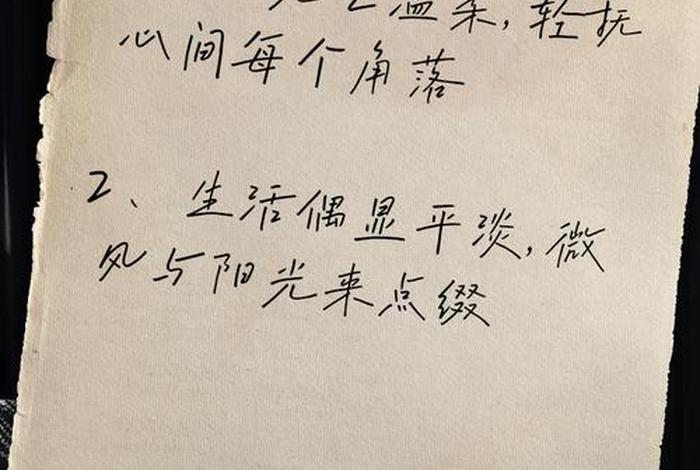 温柔，轻抚
心间每个角落
2、生活偶显平淡，微
风与阳光来点缀